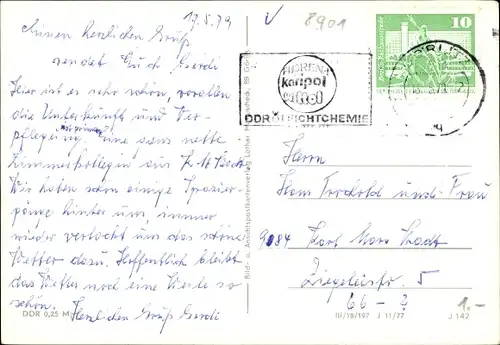 17.5.79
8901
Einen herzlichen Gruß
sendet Euch Gerdi
Hier ist es sehr schön, vor allen
die Unterkunft und Ver-
pflegung. Eine sehr nette
Zimmerkollegin aus K. M. Stadt.
Wir haben schon einige Spazier-
gänge hinter uns, immer
wieder verlockt uns das schöne
Wetter dazu. Hoffentlich bleibt
das Wetter noch eine Weile so
schön. Herzlichen Gruß Gerdi
DDR 0,25 M
Bild- u. Ansichtskartenverlag Lothar
10
FIORENA
karipol
DDR LEICHTCHEMIE
Herrn
und Frau
9084 Karl Marx Stadt
Ziegeleistr. 5
66 - ?
1.-
III/18/197 J 11/77 J 142